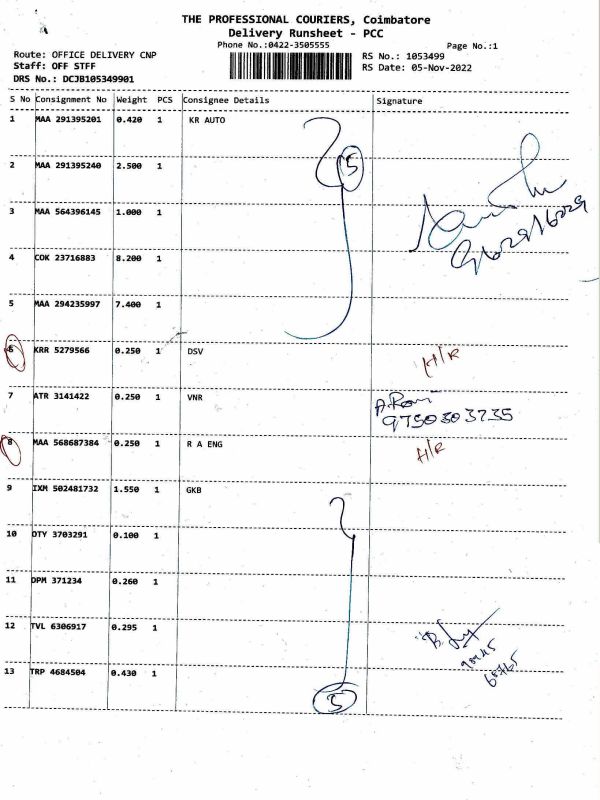 THE PROFESSIONAL COURIERS, Coimbatore
Delivery Runsheet - PCC
Phone No.:0422-3505555
Page No.:1
Route: OFFICE DELIVERY CNP
RS No.: 1053499
Staff: OFF STFF
RS Date: 05-Nov-2022
DRS No.: DCJB105349901
S No Consignment No Weight PCS Consignee Details Signature
1 MAA 291395201 0.420 1 KR AUTO
2 MAA 291395240 2.500 1
5
3 MAA 564396145 1.000 1
4 COK 23716883 8.200 1
5 MAA 294235997 7.400 1
6 KRR 5279566 0.250 1 DSV H/R
7 ATR 3141422 0.250 1 VNR
9750303235
8 MAA 568687384 0.250 1 R A ENG H/R
9 IXM 502481732 1.550 1 GKB
10 DTY 3703291 0.100 1
11 DPM 371234 0.260 1
12 TVL 6306917 0.295 1
13 TRP 4684504 0.430 1
5